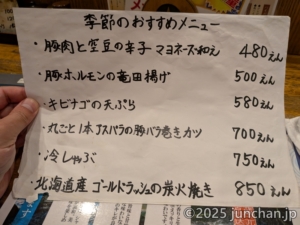 季節のおすすめメニュー
・豚肉と空豆の辛子マヨネーズ和え 480えん
・豚ホルモンの竜田揚げ 500えん
・キビナゴの天ぷら 580えん
・丸ごと1本アスパラの豚バラ巻きカツ 700えん
・冷しゃぶ 750えん
・北海道産ゴールドラッシュの炭火焼き 850えん
©2025 junchan.jp